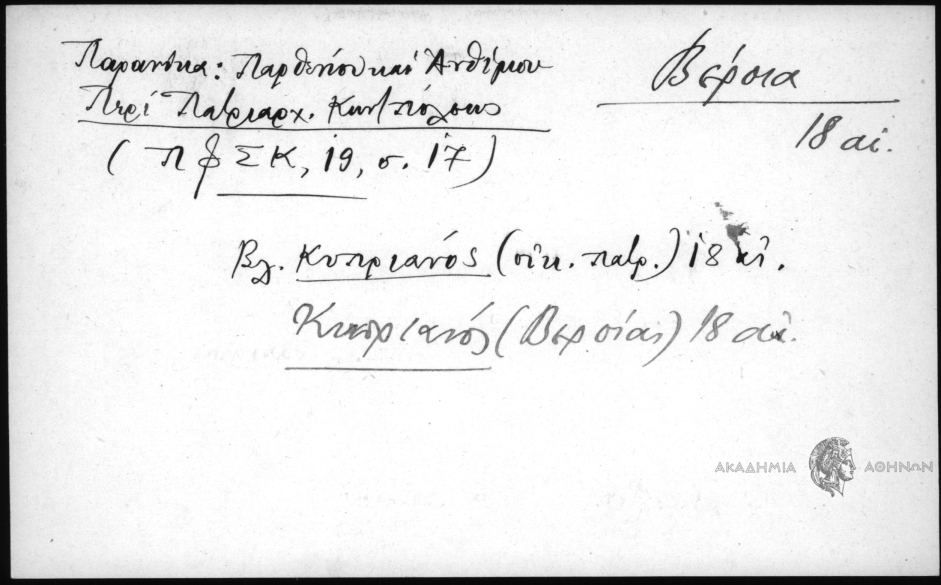 Παρανίκα: Παρθενίου καὶ Ἀνθίμου
Περὶ Πατριαρχ. Κωνσπόλεως
(ΠΦΣΚ, 19, σ. 17)
Βέροια
18 αἰ.
Βλ. Κυπριανός (οἰκ. πατρ.) 18 αἰ.
Κυπριανός (Βεροίας) 18 αἰ.
ΑΚΑΔΗΜΙΑ ΑΘΗΝΩΝ